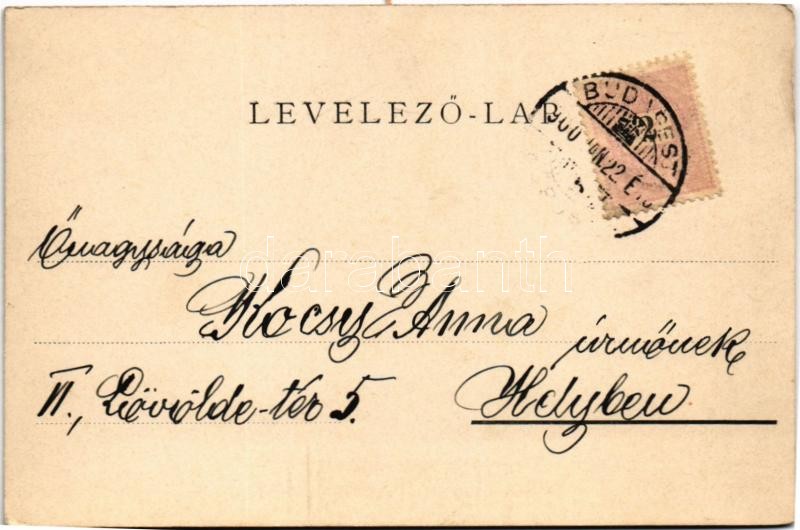 LEVELEZŐ-LAP
BUDAPEST
900 JUN. 22 É
Őnagysága
Kocsy Anna
úrnőnek
VI., Lövölde-tér 5.
Helyben
darabanth